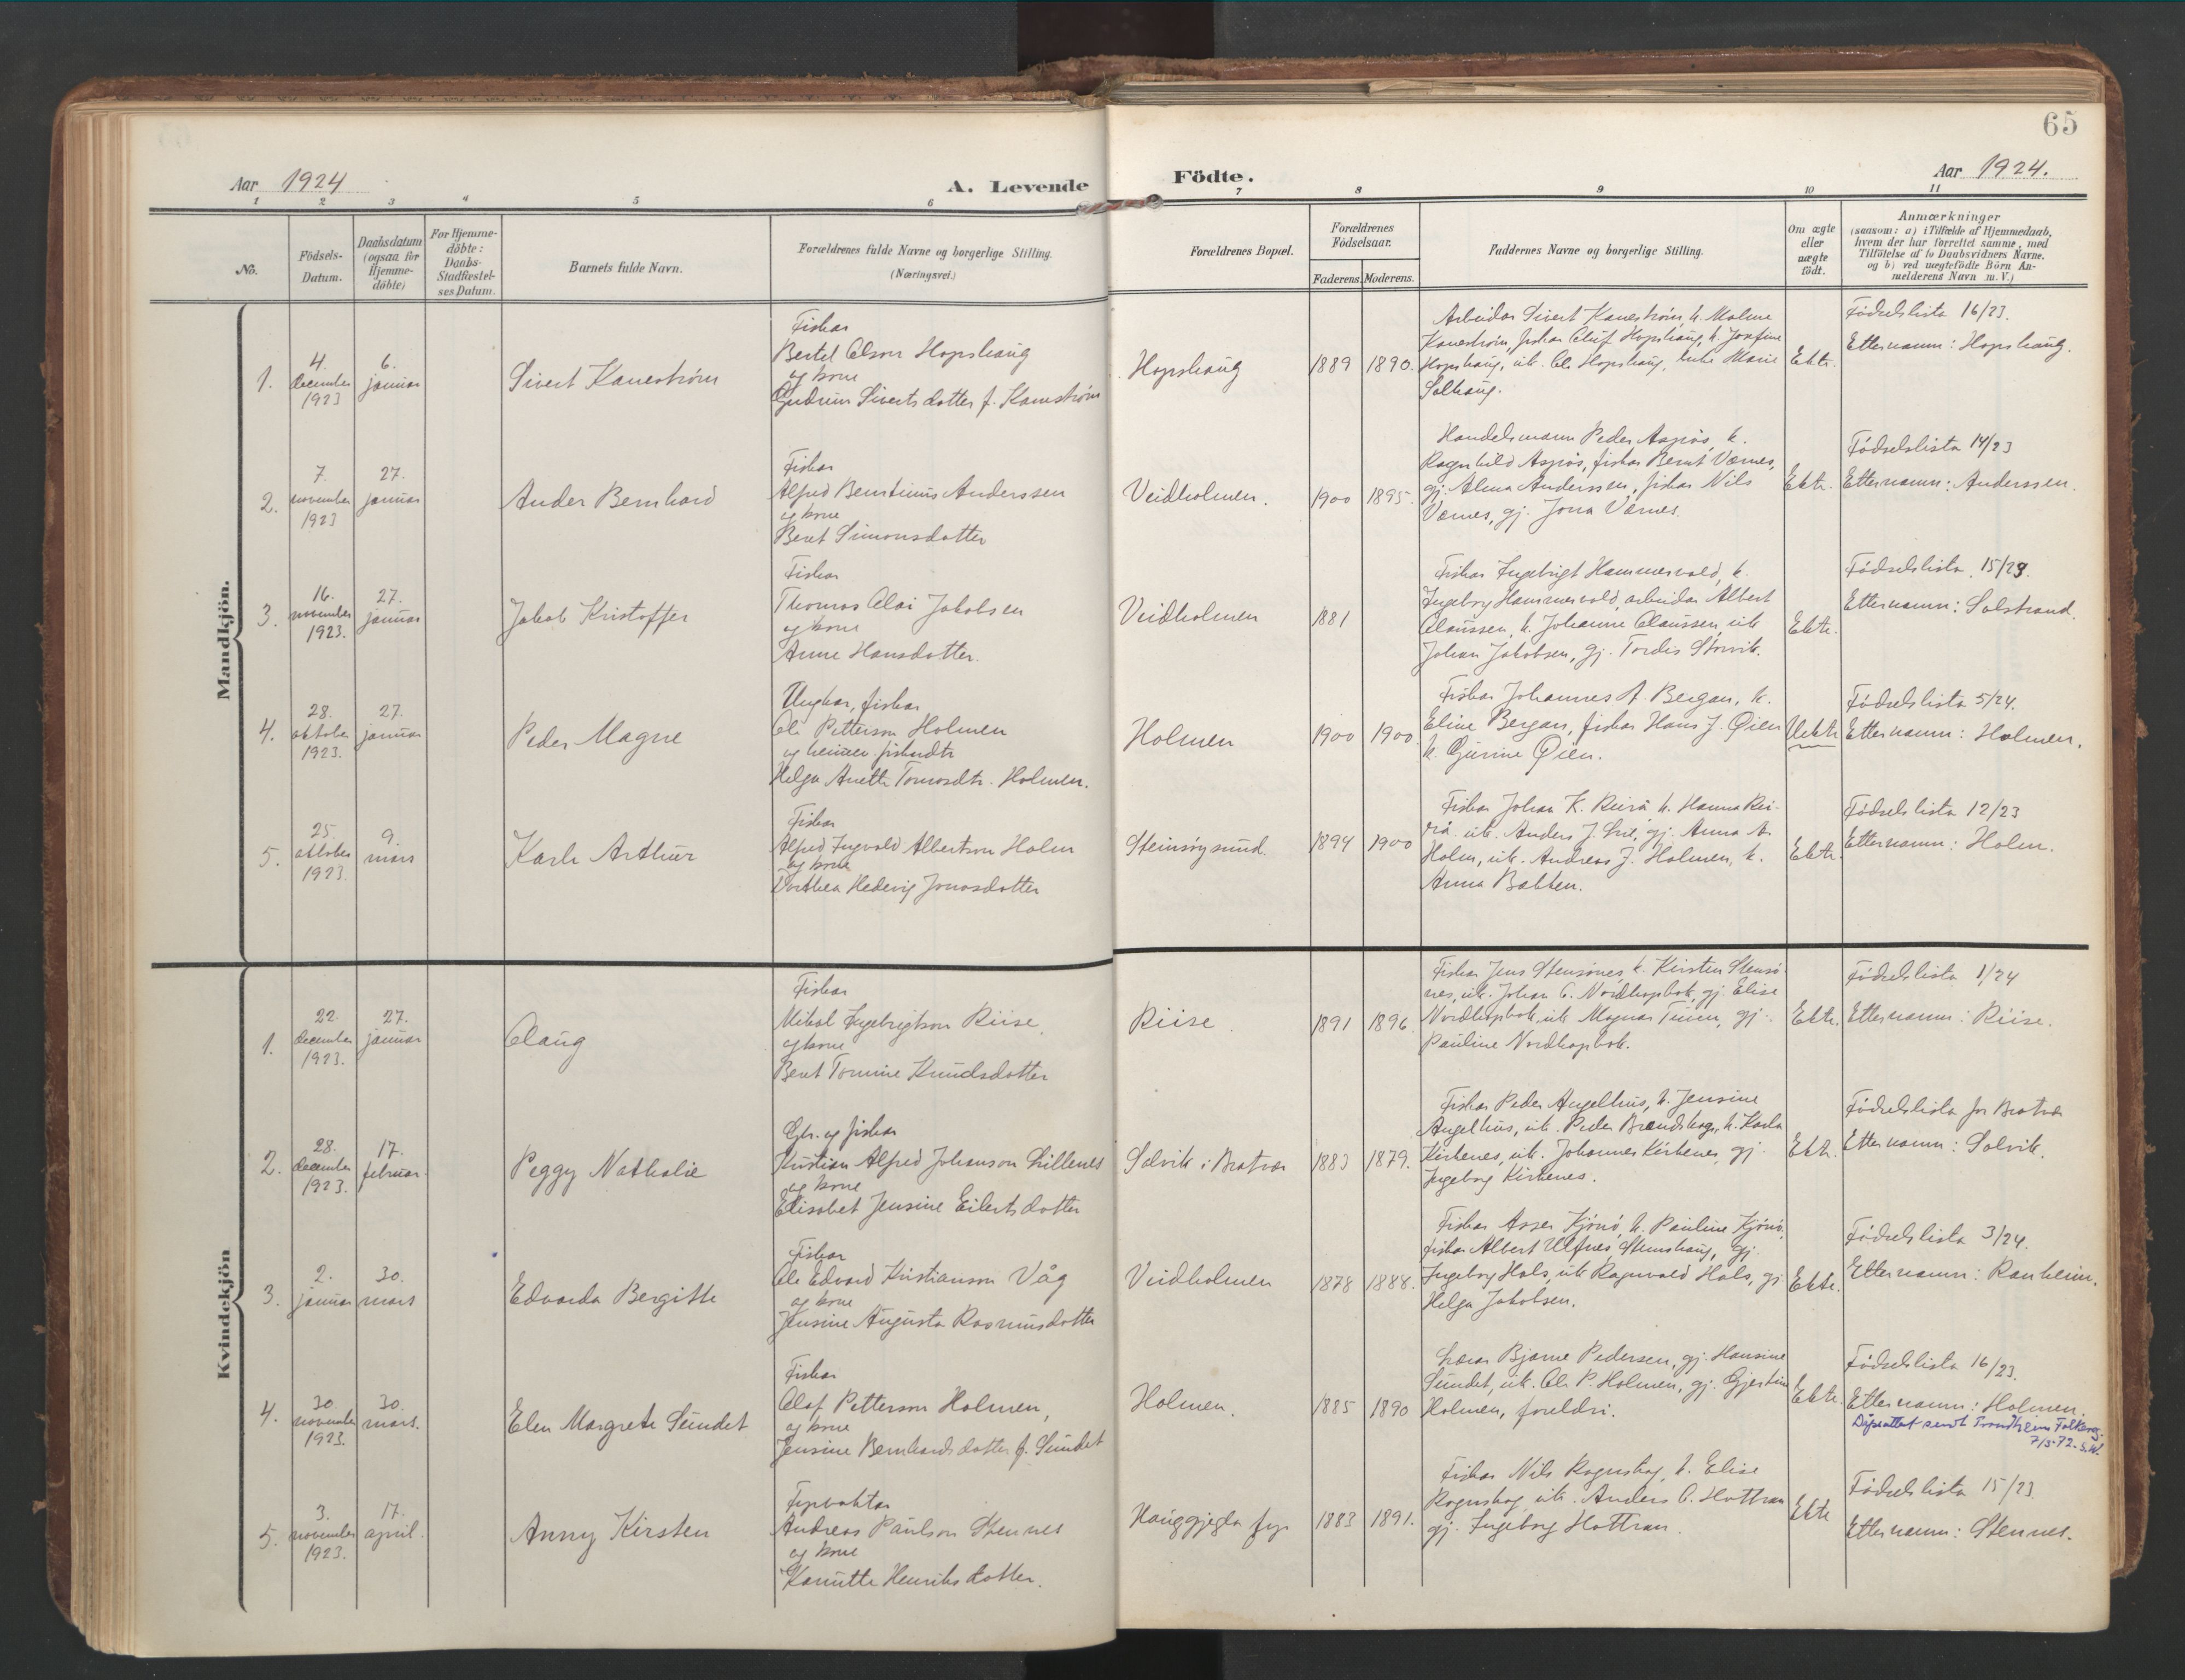 65
Aar 1924
A. Levende Födte.
Aar 1924.
1 2 3 4 5 6 7 8 9 10 11
No.
Födsels-
Datum.
Daabsdatum
(ogsaa for
Hjemme-
döbte)
For Hjemme-
döbte:
Daabs-
Stadfæstel-
ses Datum.
Barnets fulde Navn.
Forældrenes fulde Navne og borgerlige Stilling.
(Næringsvei.)
Forældrenes Bopæl.
Forældrenes
Födselsaar.
Faderens. Moderens.
Faddernes Navne og borgerlige Stilling.
Om ægte
eller
uægte
födt.
Anmærkninger
(saasom: a) i Tilfælde af Hjemmedaab,
hvem der har forrettet samme, med
Tilföielse af to Daabsvidners Navne,
og b) ved uægtefödte Börn An-
melderens Navn m.V.)
Mandkjön.
1.
4.
december
1923
6.
januar
Sivert Kanestrøm
Fiskar
Bertel Olson Hopshaug
og kone
Gudrun Sivertsdotter f. Kanestrøm
Hopshaug
1889
1890.
Arbeidar Sivert Kanestrøm, k. Malene
Kanestrøm, fiskar Oluf Hopshaug, k. Josefine
Hopshaug, uk. Ole Hopshaug, Marie
Solhaug.
Ekte.
Fødselslista 16/23.
Etternamn: Hopshaug.
2.
7.
november
1923
27.
januar
Ander Bernhard
Fiskar
Alfred Berntinus Anderssen
og kone
Beret Simonsdotter
Veidholmen.
1900
1895.
Handelsmann Peder Aspøs, k.
Ragnhild Aspøs, fiskar BerntVærnes,
gj. Alma Anderssen, fiskar Nils
Værnes, gj. Jona Værnes.
Ekte.
Fødselslista 14/23
Etternamn: Anderssen.
3.
16.
november
1923.
27.
januar
Jakob Kristoffer
Fiskar
Thomas Olai Jakobsen
og kone
Anne Hansdotter.
Veidholmen
1881
Fiskar Ingebrigt Hammervold, k.
Ingeborg Hammervold, arbeidar Albert
Claussen, k. Johanne Claussen, uk
Johan Jakobsen, gj. Tordis Størvik.
Ekte.
Fødselslista 15/23.
Etternamn: Solstrand.
4.
28.
oktober
1923.
27.
januar
Peder Magne
Ungkar, fiskar
Ole Petterson Holmen
og
Helga Anette Tomasdtr. Holmen.
Holmen
1900
1900
Fiskar Johannes A. Bergan, k.
Eline Bergan, fiskar Hans J. Øien
k. Gurine Øien.
Uekte
Fødselslista 5/24.
Etternamn: Holmen.
5.
25.
oktober
1923.
9.
mars
Karle Arthur
Fiskar
Alfred Ingvald Albertson Holm
og kone
Dorthea Hedevig Jonasdotter
Steinsøysund.
1894
1900
Fiskar Johan K. k. Hanna
uk. Anders J. gj. Anna A.
Holm, uk. Andreas J. Holmen, k.
Anna Bakken.
Ekte.
Fødselslista 12/23
Etternamn: Holm.
Kvindekjön
1.
22.
december
1923.
27.
januar
Olaug
Fiskar
Mikal Ingebrigtson Riise,
og kone
Beret Tomine Knudsdotter
Riise.
1891
1896.
Fiskar Jens Stensønes, k. Kirsten Stensø-
nes, uk. Johan O. Nordhopbok, gj. Elise
Nordhopbok, uk Magnar Tuien, gj.
Pauline Nordhopbok.
Ekte.
Fødselslista 1/24
Etternamn: Riise.
2.
28.
december
1923.
17.
februar.
Peggy Nathalie
Gbr. og fiskar
Kristian Alfred Johanson Lillenes
og kone
Elisabet Jensine Eilertsdotter
Solvik i Bratvær
1883
1879.
Fiskar Peder Angelhus, k. Jensine
Angelhus, uk. Peder Brendskag, k. Karla
Kirkenes, uk. Johannes Kirkenes, gj.
Ingeborg Kirkenes.
Ekte.
Fødselslista for Bratvær
Etternamn: Solvik.
3.
2.
januar
30.
mars
Edvarda Bergitte
Fiskar
Ole Edvard Kristianson Våg
og kone
Jensine Augusta Rasmusdotter
Veidholmen
1878
1888.
Fiskar Asser Kjønø, k. Pauline Kjønø,
fiskar Albert Ulfnes, Stenshaug, gj.
Ingeborg Hals, uk Ragnvald Hals, gj
Helga Jakobsen.
Ekte.
Fødselslista 3/24.
Etternamn: Ranheim.
4.
30.
november
1923.
30.
mars.
Elen Margrete Sundet
Fiskar
Olaf Petterson Holmen,
og kone
Jensine Bernhardsdotter f. Sundet
Holmen.
1885
1890
Lærar Bjarne Pedersen, gj. Hansine
Sundet, uk. Ole P. Holmen, gj. Gjertine
Holmen, foreldri.
Ekte.
Fødselslista 16/23.
Etternamn: Holmen.
Dåpsattest sendt Trondheim Folkereg.
7/3-72. S.W.
5.
3.
november
1923.
17.
april.
Anny Kirsten
Fyrvaktar
Andreas Paulson Stennes
og kone
Kanutte Henriksdotter.
Hauggjegla fyr
1883
1891.
Fiskar Nils Rognskog, k. Elise
Rognskog, uk. Anders O. Hattran
gj. Ingeborg Hattran.
Ekte
Fødselslista 15/23
Etternamn: Stennes.